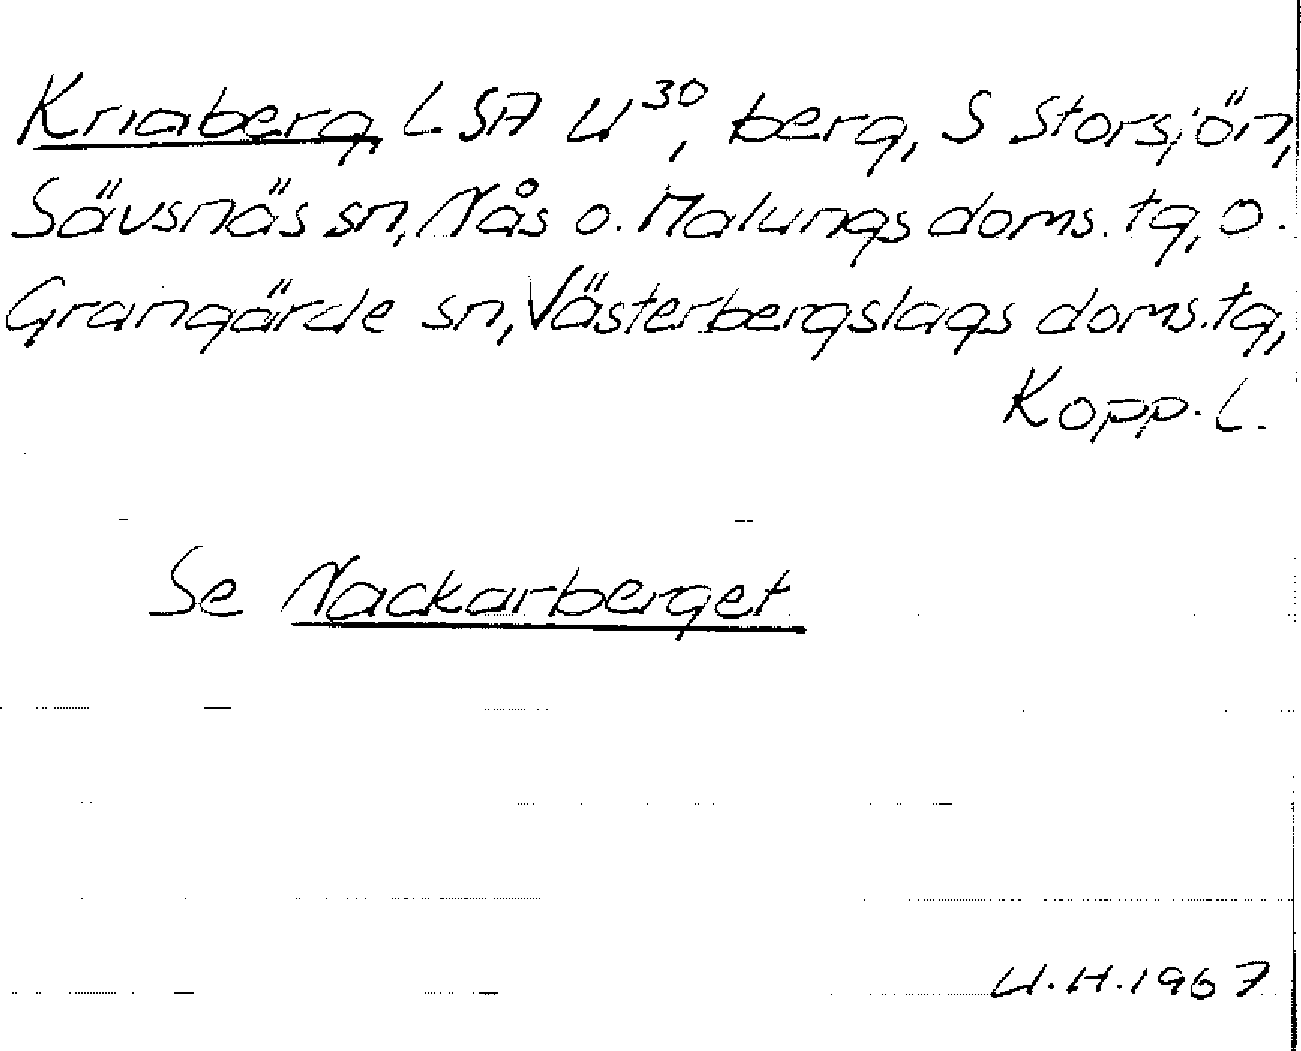 Knaberg, LSA U³⁰, berg, S Storsjön,
Sävsnäs sn, Nås o. Malungs doms. tg, o.
Grangärde sn, Västerbergslags doms. tg,
Kopp. L.
Se Nackarberget
U.H. 1967